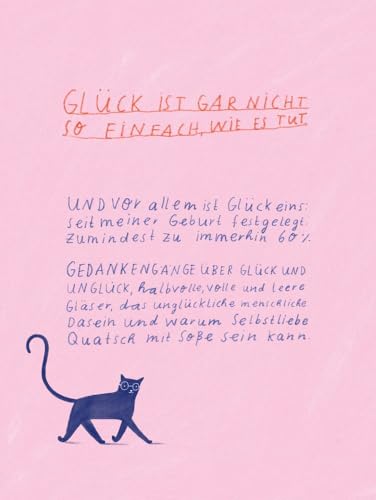 GLÜCK IST GAR NICHT
SO EINFACH, WIE ES TUT.
UND vor allem ist Glück eins:
seit meiner Geburt festgelegt.
Zumindest zu immerhin 60%.
GEDANKENGÄNGE ÜBER GLÜCK UND
UNGLÜCK, halbvolle, volle und leere
Gläser, das unglückliche menschliche
Dasein und warum Selbstliebe
Quatsch mit Soße sein kann.